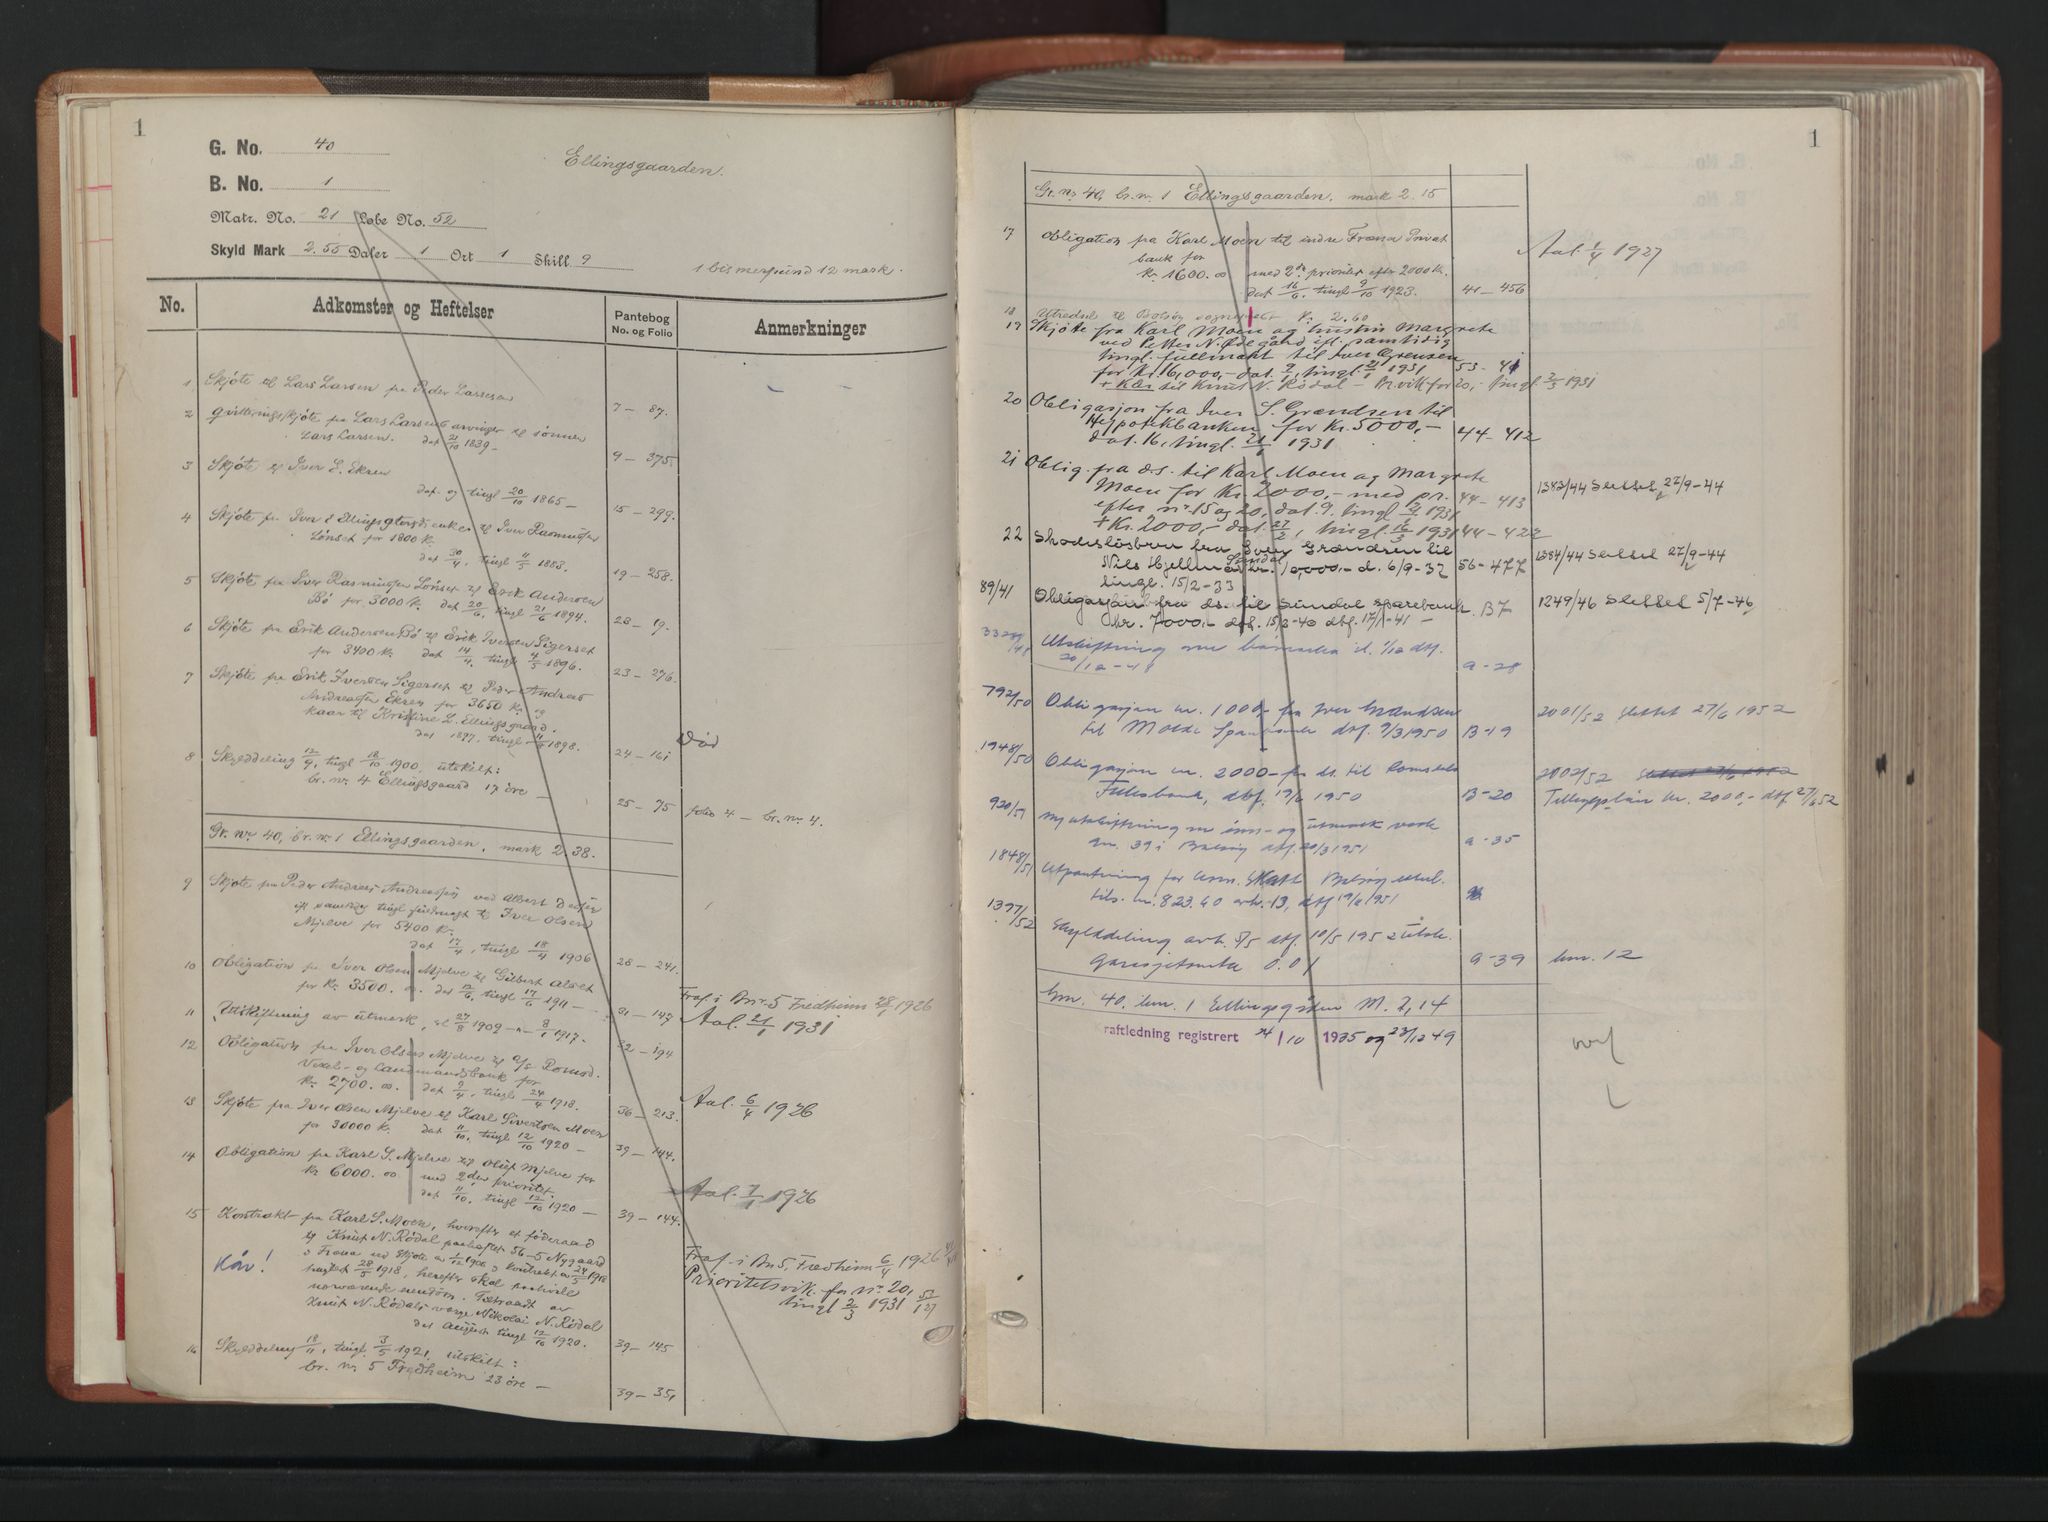 1
G. No. 40
Ellingsgaarden.
B. No. 1
Matr. No. 21 Løbe No. 52
Skyld Mark 2.55 Daler 1 Ort 1 Skill. 9
1 bismerpund 12 mark.
No. Adkomster og Heftelser Pantebog No. og Folio Anmerkninger
1 Skjøte til Lars Larsen fra Peder Larsen 7 – 87.
2 Qvitteringsskjøte fra Lars Larsens arvinger til sønnen
Lars Larsen. dat 21/10 1839 – 9 – 375.
3 Skjøte til Iver E. Ekren
dat. og tingl 20/10 1865 – 15 – 299.
4 Skjøte fra Iver Ellingsgaards enke til Iver Rasmussen
Lønset for 1800 Kr.
dat 30/4, tingl 11/5 1883. 19 – 258.
5 Skjøte fra Iver Rasmussen Lønset til Erik Andersen
Bø for 3000 Kr. dat 20/6, tingl 21/6 1894. 23 – 19.
6 Skjøte fra Erik Andersen Bø til Erik Iversen Sigerset
for 3400 Kr. dat 14/4, tingl 4/5 1896. 23 – 276.
7 Skjøte fra Erik Iversen Sigerset til Peder Andreas
Andreassen Ekren for 3650 Kr. og
kaar til Kristine L. Ellingsgaard.
dat 1897, tingl 11/5 1898. 24 – 161
Død
8 Skylddeling 12/9, tingl 12/10 1900, utskilt:
br. nr. 4 Ellingsgaard 17 øre – 25 – 75 folio 4 – br. nr. 4.
Gr. nr. 40, br. nr. 1 Ellingsgaarden, mark 2.38.
9 Skjøte fra Peder Andreas Andreassen ved Albert
eft. samtidig tingl fuldmagt til Iver Olsen
Mjelve for 5400 Kr.
dat 17/4, tingl 18/4 1906 28 – 241.
10 Obligation fra Iver Olsen Mjelve til Gilbert Alset
for Kr. 3500.00. dat 12/6, tingl 17/6 1911 – 31 – 147
Fraf. i Bnr. 5 Fredheim 28/1 1926
Avl. 21/1 1931
11 Utskiftning av utmark, 27/8 1909 – 8/1 1917. 32 – 194
12 Obligation fra Iver Olsen Mjelve til A/S Romsd.
Vexel- og Landmandsbank for
Kr. 2700.00. dat 9/4, tingl 24/4 1918. 36 – 213.
Avl. 6/4 1926
13 Skjøte fra Iver Olsen Mjelve til Karl Sivertsen Moen
for 30000 Kr. dat 11/10, tingl 12/10 1920 – 39 – 144.
14 Obligation fra Karl S. Mjelve til Oluf Mjelve for
Kr 6000.00 med 2den prioritet.
dat 11/10, tingl 12/10 1920 – 39 – 144.
Avl. 7/1 1926
15 Kontrakt fra Karl S. Moen, hvorefter et føderaad
til Knut N. Rødal paaheftet 56-5 Nygaard
i Fræna ved skjøte av 1/12 1906 og kontrakt av 24/5 1918
tinglest 28/5 1918, herefter skal paahvile
nærværende eiendom. Tiltraadt av
Knut N. Rødals verge Nikolai N. Rødal
dat August tingl 12/10 1920. 39 – 145
Kår!
Fraf. i Bn 5, Fredheim 6/4 1926
Prioritetsvik. for nr. 20,
tingl 2/3 1931 53/127
16 Skylddeling 18/11, tingl. 3/5 1921, utskilt:
br. nr 5 Fredheim 23 øre – 39 – 351
1
Gr. nr. 40, br. nr. 1 Ellingsgaarden, mark 2.15
17 Obligation fra Karl Moen til indre Fræna Privat
bank for
Kr. 1600.00 med 2. prioritet efter 2000 Kr.
dat 16/6, tingl 9/10 1923. 41 – 456
Avl. 1/4 1927
18 Utredsel til Bolsøy sogneprest Kr. 2.60
19 Skjøte fra Karl Moen og hustru Margrete
ved Petter N. Ødegård ifl. samtidig
tingl. fullmakt til Iver Grendsen
for Kr. 16,000,- dat. 9/1, tingl. 21/1 1931 53 – 41
+ Kår til Knut N. Rødal – Pr.vik for 20, – tingl 2/3 1931
20 Obligasjon fra Iver S. Grændsen til
Hypotekbanken for Kr. 5000,–
dat. 16, tingl. 21/1 1931 44 – 412
21 Oblig. fra d.s. til Karl Moen og Margrete
Moen for Kr. 2000,– med pr.
efter nr. 15 og 20, dat. 9, tingl 21/1 1931 44 – 413
+ Kr. 2000,– dat. 27/2, tingl. 16/3 1931 44 – 422
1383/44 Slettet 27/9-44
22 Skadesløsbrev fra Iver Grændsen til
Nils Hjellnes Sandøl kr. 10,000,- d. 6/9-32 56 – 477
tingl. 15/2-33
1384/44 Slettet 27/9-44
89/41 Obligasjon fra ds. til Sundal sparebank B 7
kr. 7000,- dat. 15/2-40 dbf. 17/1-41 –
1249/46 Slettet 5/7-46
3328/48 Utskiftning dbf.
20/12-48 a – 28
792/50 Obligasjon kr. 1000,- fra Iver Grændsen
til Molde Sparebank dbf. 9/3 1950 B – 19
2001/52 Slettet 27/6 1952
1948/50 Obligasjon kr. 2000,- fra ds. til Romsdals
Fellesbank, dbf. 19/6 1950 B – 20
2002/52 Slettet 27/6 1952
Tilleggslån kr. 2000,- dbf 27/6 52
920/51 Utskiftning m inn- og utmark vedk
gnr. 39 i Bolsøy dbf. 20/3 1951 a – 35
1848/51 Utpantning for komm. skatt Bolsøy
tils. kr. 823.60 avh. 13, dbf 19/6 1951
1397/52 Skylddeling avh. 5/5 dbf. 10/5 1952 Utsk.
Garasjetomta 0.01 a – 39 bnr. 12
Gnr. 40. bnr. 1 Ellingsgården M. 2,14
raftledning registrert 24/10 1935 og 23/12 49